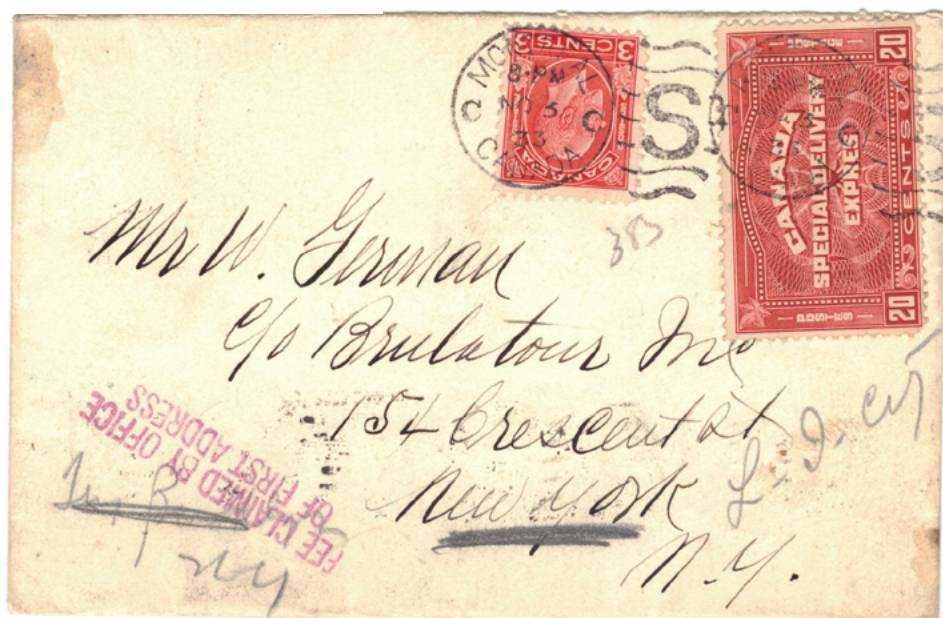 3 CENTS 3
CANADA
8 PM
NO 3
33
CANADA
S
C
20
CANADA
SPECIAL DELIVERY
EXPRES
CENTS
20
383
Mr W. German
c/o Brulatour Inc
154 Crescent St
New York
N.Y.
L. I. City
FEE CLAIMED BY OFFICE
OF FIRST ADDRESS
N Y